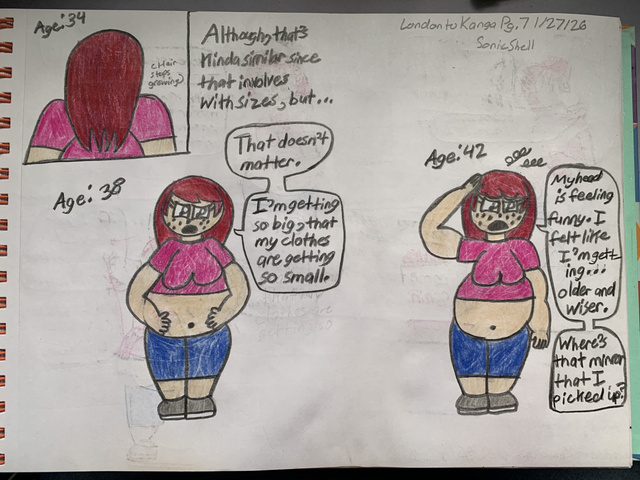 Age: 34
(Hair
stops
growing)
Although, that's
kinda similar since
that involves
with sizes, but...
London to Kanga Pg. 7 1/27/26
SonicShell
That doesn't
matter.
Age: 38
I'm getting
so big, that
my clothes
are getting
so small.
Age: 42
My head
is feeling
funny. I
felt like
I'm gett-
ing...
older and
wiser.
Where's
that mirror
that I
picked up?